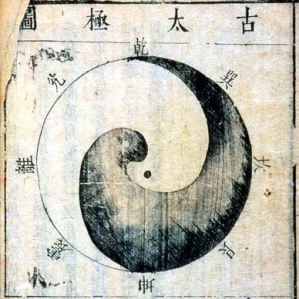 古太極圖
乾
巽
兌
坎
離
艮
震
坤